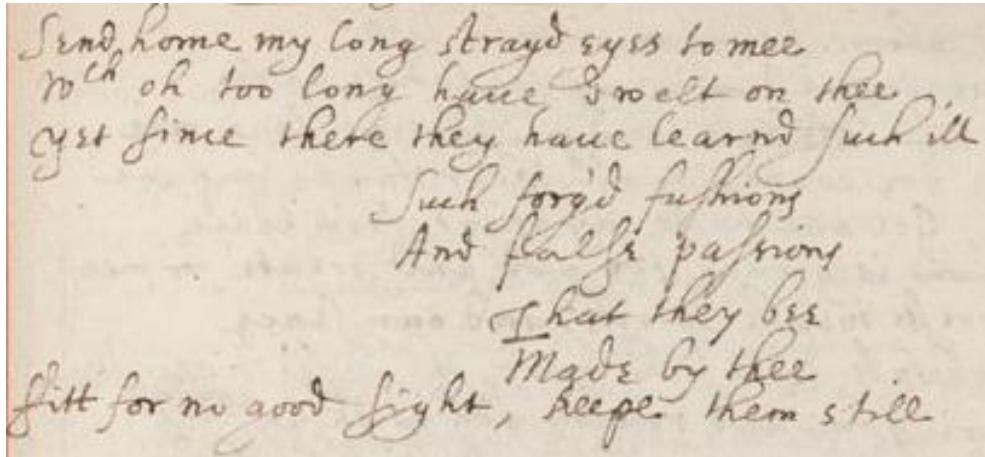 Send home my long strayd eyes to mee
Wch oh too long haue dwelt on thee
yet since there they haue learnd such ill
Such forg'd fashions
And false passions
That they bee
Made by thee
fitt for no good sight, keepe them still